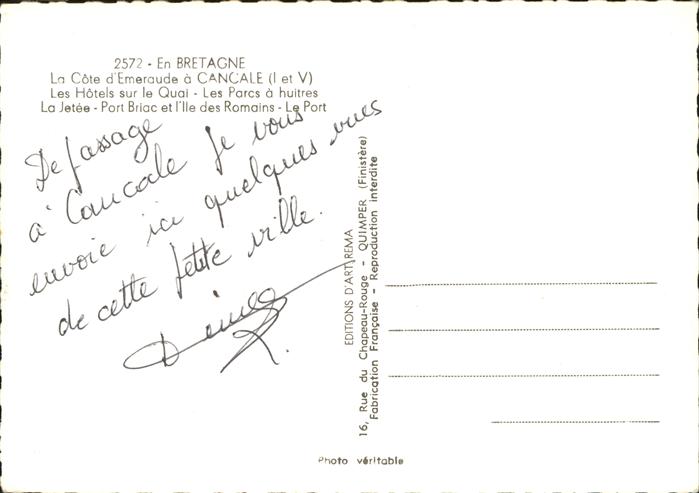 2572 - En BRETAGNE
La Côte d'Emeraude à CANCALE (I et V)
Les Hôtels sur le Quai - Les Parcs à huitres
La Jetée - Port Briac et l'Ile des Romains - Le Port
De passage
à Cancale je vous
envoie ici quelques vues
de cette petite ville.
EDITIONS D'ART REMA
16, Rue du Chapeau-Rouge - QUIMPER (Finistère)
Fabrication Française - Reproduction interdite
Photo véritable